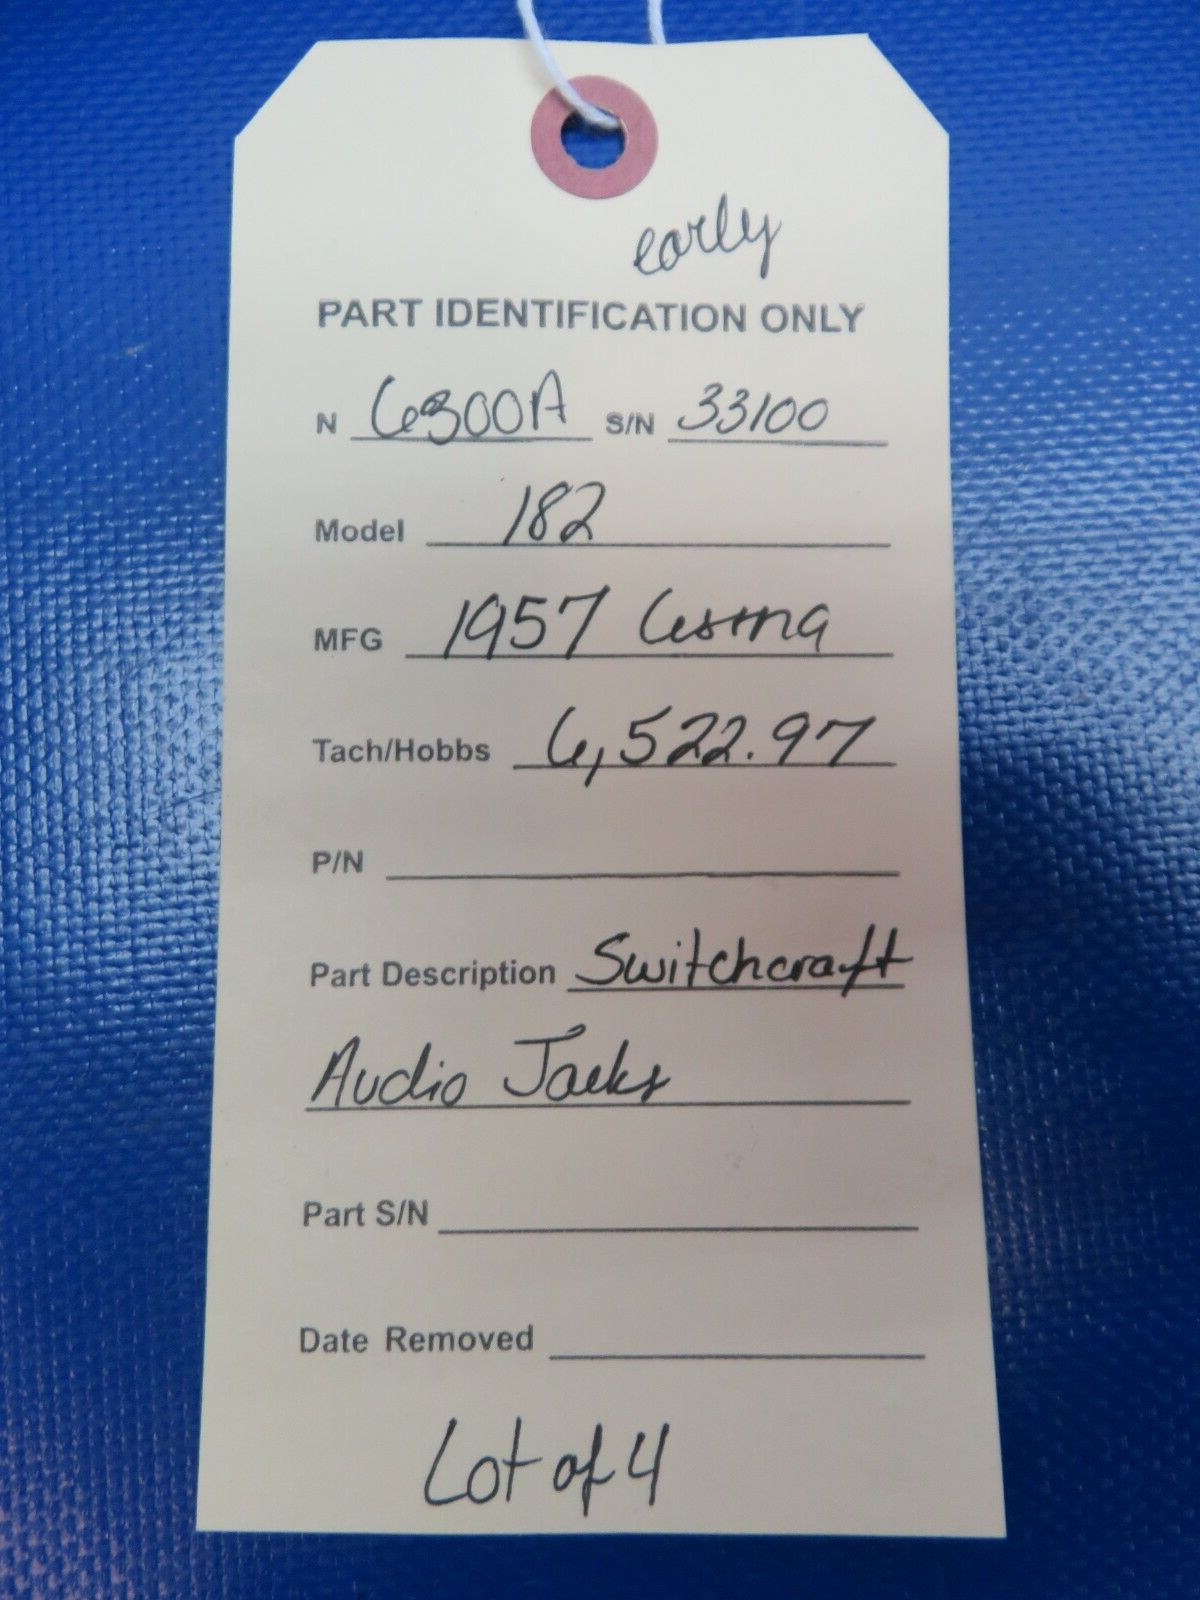 early
PART IDENTIFICATION ONLY
N 6300A S/N 33100
Model 182
MFG 1957 Cessna
Tach/Hobbs 6,522.97
P/N
Part Description Switchcraft
Audio Jacks
Part S/N
Date Removed
Lot of 4